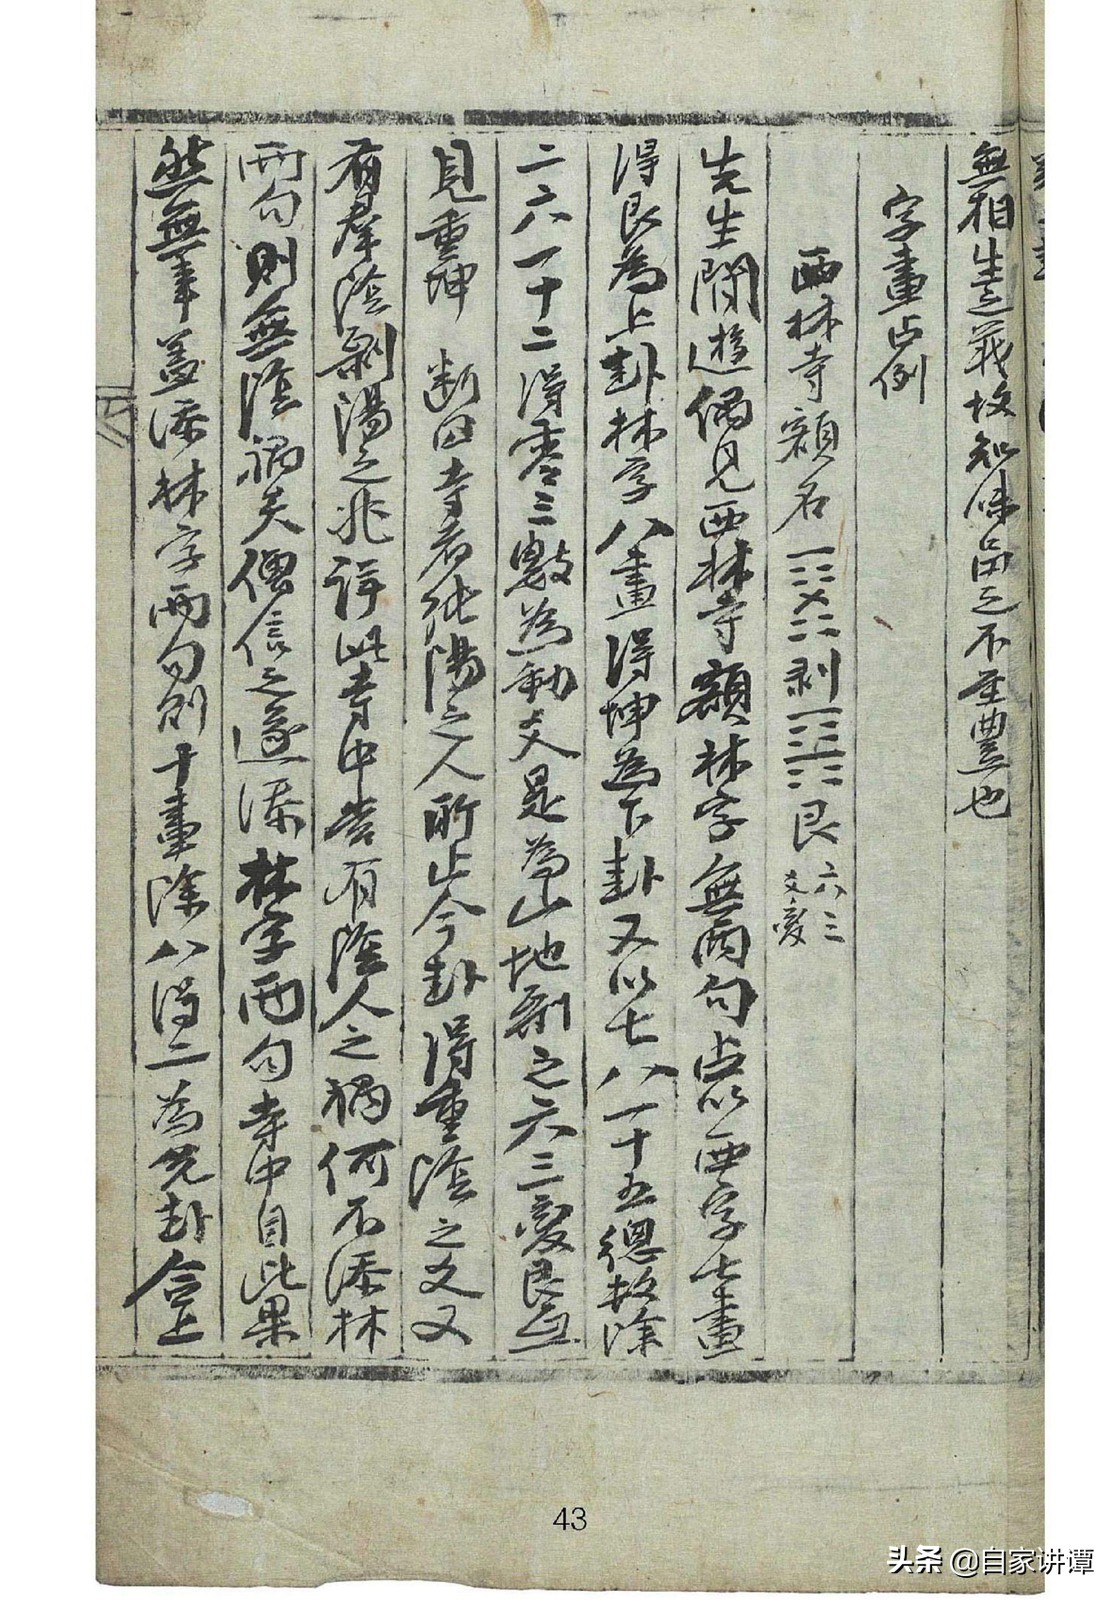 無相生之義故知味之不至豊也
字畫占例
西林寺額名 剥 艮 六三爻変
先生間遊偶見西林寺額林字無両勾占以西字七畫
得艮為上卦林字八畫得坤為下卦又以七八一十五總数除
二六一十二得零三数為動爻是為山地剥之六三変艮互
見重坤 断曰寺者純陽之人所止今卦得重陰之爻又
有羣陰剥陽之兆詳此寺中當有陰人之禍何不添林
両勾則無陰禍矣僧信之遂添林字両勾寺中自此果
然無事蓋添林字両勾則十畫除八得二為兊卦合上
43
头条 @自家讲谭